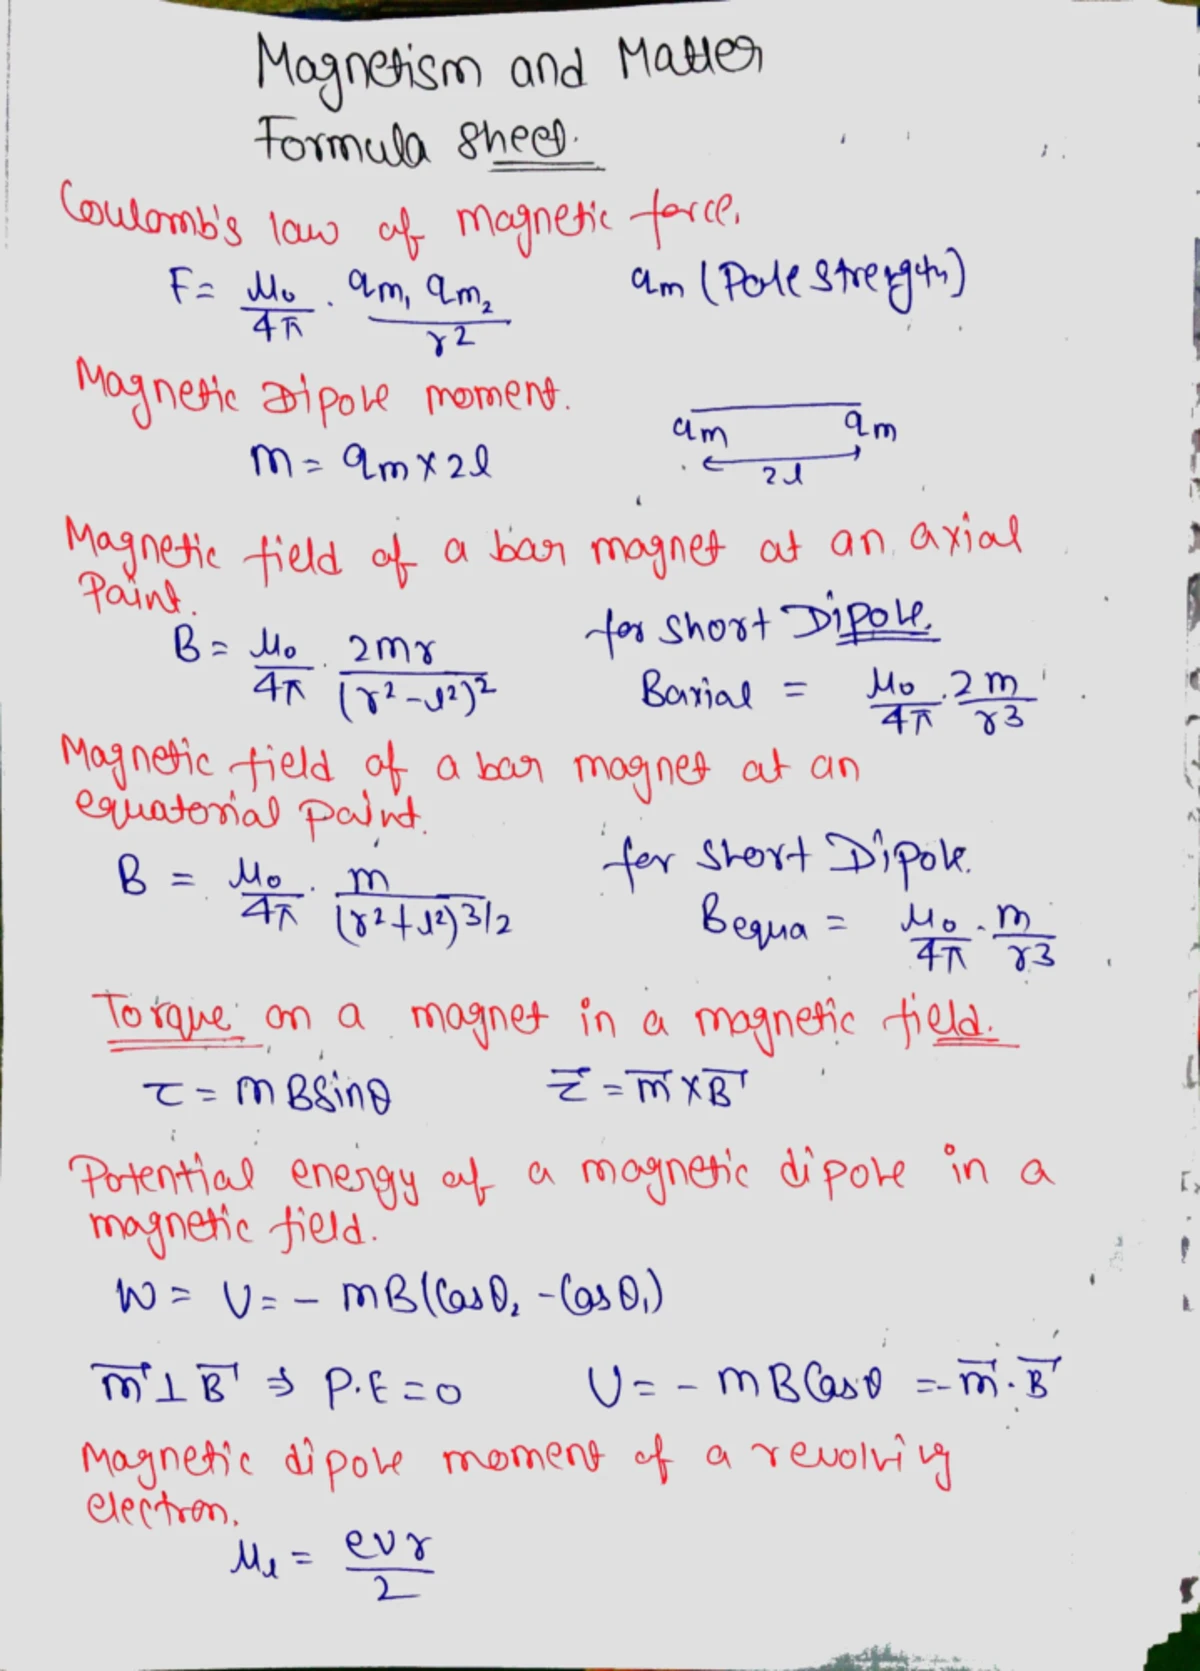 Magnetism and Matter
Formula Sheet.
Coulomb's law of magnetic force.
F = μ₀/4π · qm₁ qm₂/r² qm (Pole Strength)
Magnetic Dipole moment.
m = qm × 2l qm qm 2l
Magnetic field of a bar magnet at an axial
Point.
B = μ₀/4π · 2mr/(r²-l²)² for Short Dipole.
Baxial = μ₀/4π · 2m/r3
Magnetic field of a bar magnet at an
equatorial Point.
B = μ₀/4π · m/(r²+l²)3/2 for Short Dipole.
Bequa = μ₀/4π · m/r3
Torque on a magnet in a magnetic field.
τ = mBsinθ τ⃗ = m⃗ × B⃗
Potential energy of a magnetic dipole in a
magnetic field.
W = U = - mB(Cosθ₂ - Cosθ₁)
m⃗ ⊥ B⃗ ⇒ P.E = 0 U = - mBCosθ = - m⃗ · B⃗
Magnetic dipole moment of a revolving
electron.
μl = evr/2